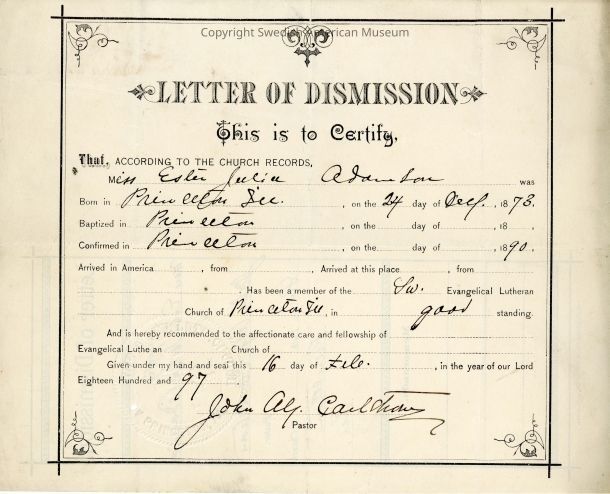 Copyright Swedish American Museum
LETTER OF DISMISSION
This is to Certify,
That, ACCORDING TO THE CHURCH RECORDS,
Miss Ester Julia Adamson was
Born in Princeton Ill. , on the 24 day of , 1873.
Baptized in Princeton , on the day of 18 ,
Confirmed in Princeton , on the day of , 1890,
Arrived in America , from , Arrived at this place , from
. Has been a member of the Sw. Evangelical Lutheran
Church of Princeton Ill, in good standing.
And is hereby recommended to the affectionate care and fellowship of
Evangelical Luthe an Church of
Given under my hand and seal this 16 day of Feb. , in the year of our Lord
Eighteen Hundred and 97
John Alf.
Pastor